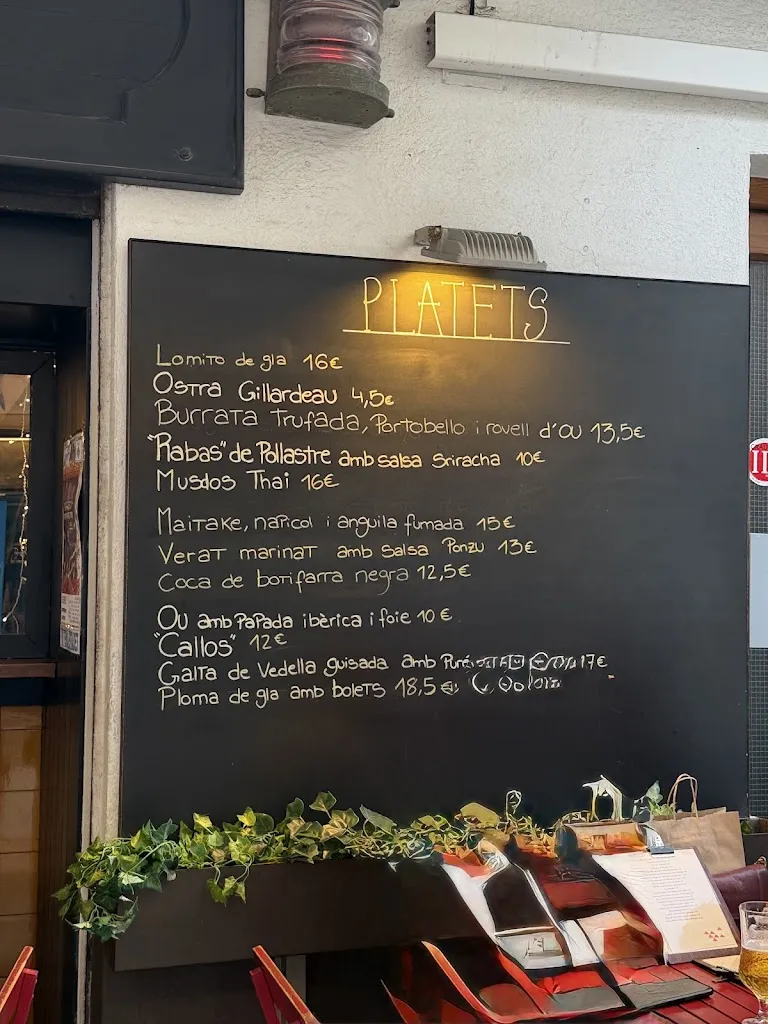 PLATETS
Lomito de gla 16€
Ostra Gillardeau 4,5€
Burrata trufada, Portobello i rovell d'ou 13,5€
"Rabas" de Pollastre amb salsa Sriracha 10€
Musclos Thai 16€
Maitake, napicol i anguila fumada 15€
Verat marinat amb salsa Ponzu 13€
Coca de botifarra negra 12,5€
Ou amb papada ibèrica i foie 10€
"Callos" 12€
Galta de Vedella guisada amb Puré 17€
Ploma de gla amb bolets 18,5€